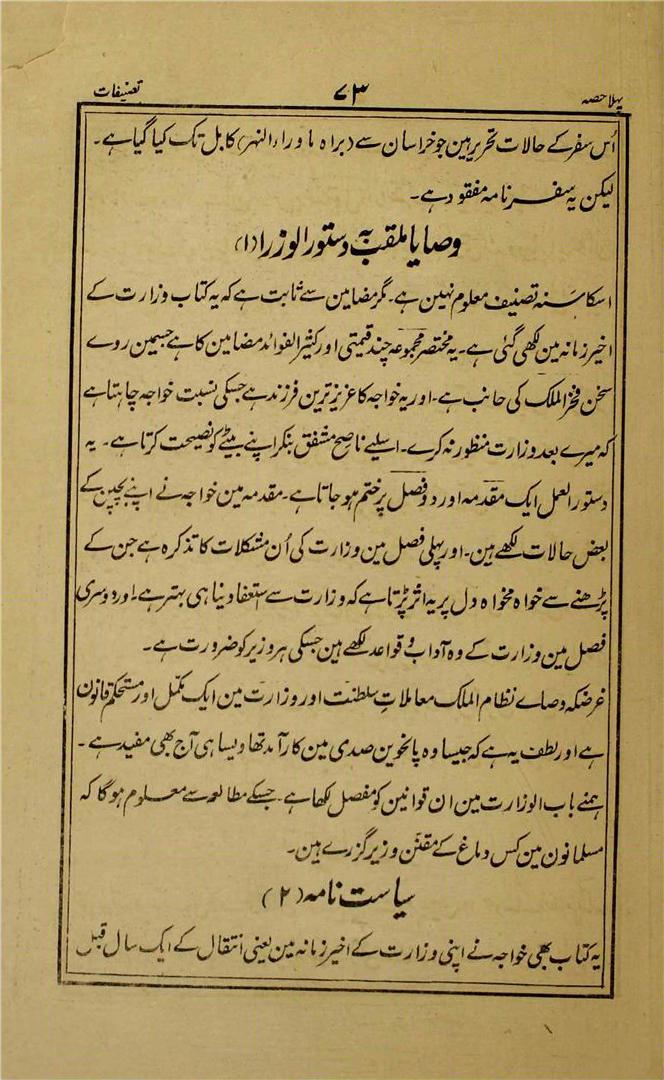 پہلا حصہ ۷۳ تصنیفات
اُس سفر کے حالات تحریر ہین جو خراسان سے (براہ ماوراءالنہر) کابل تک کیا گیا ہے۔
لیکن یہ سفرنامہ مفقود ہے۔
وصایا ملقب بہ دستورالوزرا (۱)
اسکا سنہ تصنیف معلوم نہین ہے۔ مگر مضامین سے ثابت ہے کہ یہ کتاب وزارت کے
اخیر زمانہ مین لکھی گئی ہے۔ یہ مختصر مجموعہ چند قیمتی اور کثیر الفوائد مضامین کا ہے جسمین روے
سخن فخر الملک کی جانب ہے۔ اور یہ خواجہ کا عزیز ترین فرزند ہے جسکی نسبت خواجہ چاہتا ہے
کہ میرے بعد وزارت منظور نہ کرے۔ اسلیے ناصح مشفق بنکر اپنے بیٹے کو نصیحت کرتا ہے۔ یہ
دستور العمل ایک مقدمہ اور دو فصل پر ختم ہو جاتا ہے۔ مقدمہ مین خواجہ نے اپنے بچپن کے
بعض حالات لکھے ہین۔ اور پہلی فصل مین وزارت کی اُن مشکلات کا تذکرہ ہے جن کے
پڑھنے سے خواہ مخواہ دل پر یہ اثر پڑتا ہے کہ وزارت سے استعفا دینا ہی بہتر ہے۔ اور دوسری
فصل مین وزارت کے وہ آداب و قواعد لکھے ہین جسکی ہر وزیر کو ضرورت ہے۔
غرضکہ وصاے نظام الملک معاملاتِ سلطنت اور وزارت مین ایک مکمل اور مستحکم قانون
ہے اور لطف یہ ہے کہ جیسا وہ پانچوین صدی مین کارآمد تھا ویسا ہی آج بھی مفید ہے۔
ہمنے باب الوزارت مین ان قوانین کو مفصل لکھا ہے۔ جسکے مطالعہ سے معلوم ہوگا کہ
مسلمانون مین کس دماغ کے مقنّن وزیر گزرے ہین۔
سیاست نامہ (۲)
یہ کتاب بھی خواجہ نے اپنی وزارت کے اخیر زمانہ مین یعنی انتقال کے ایک سال قبل